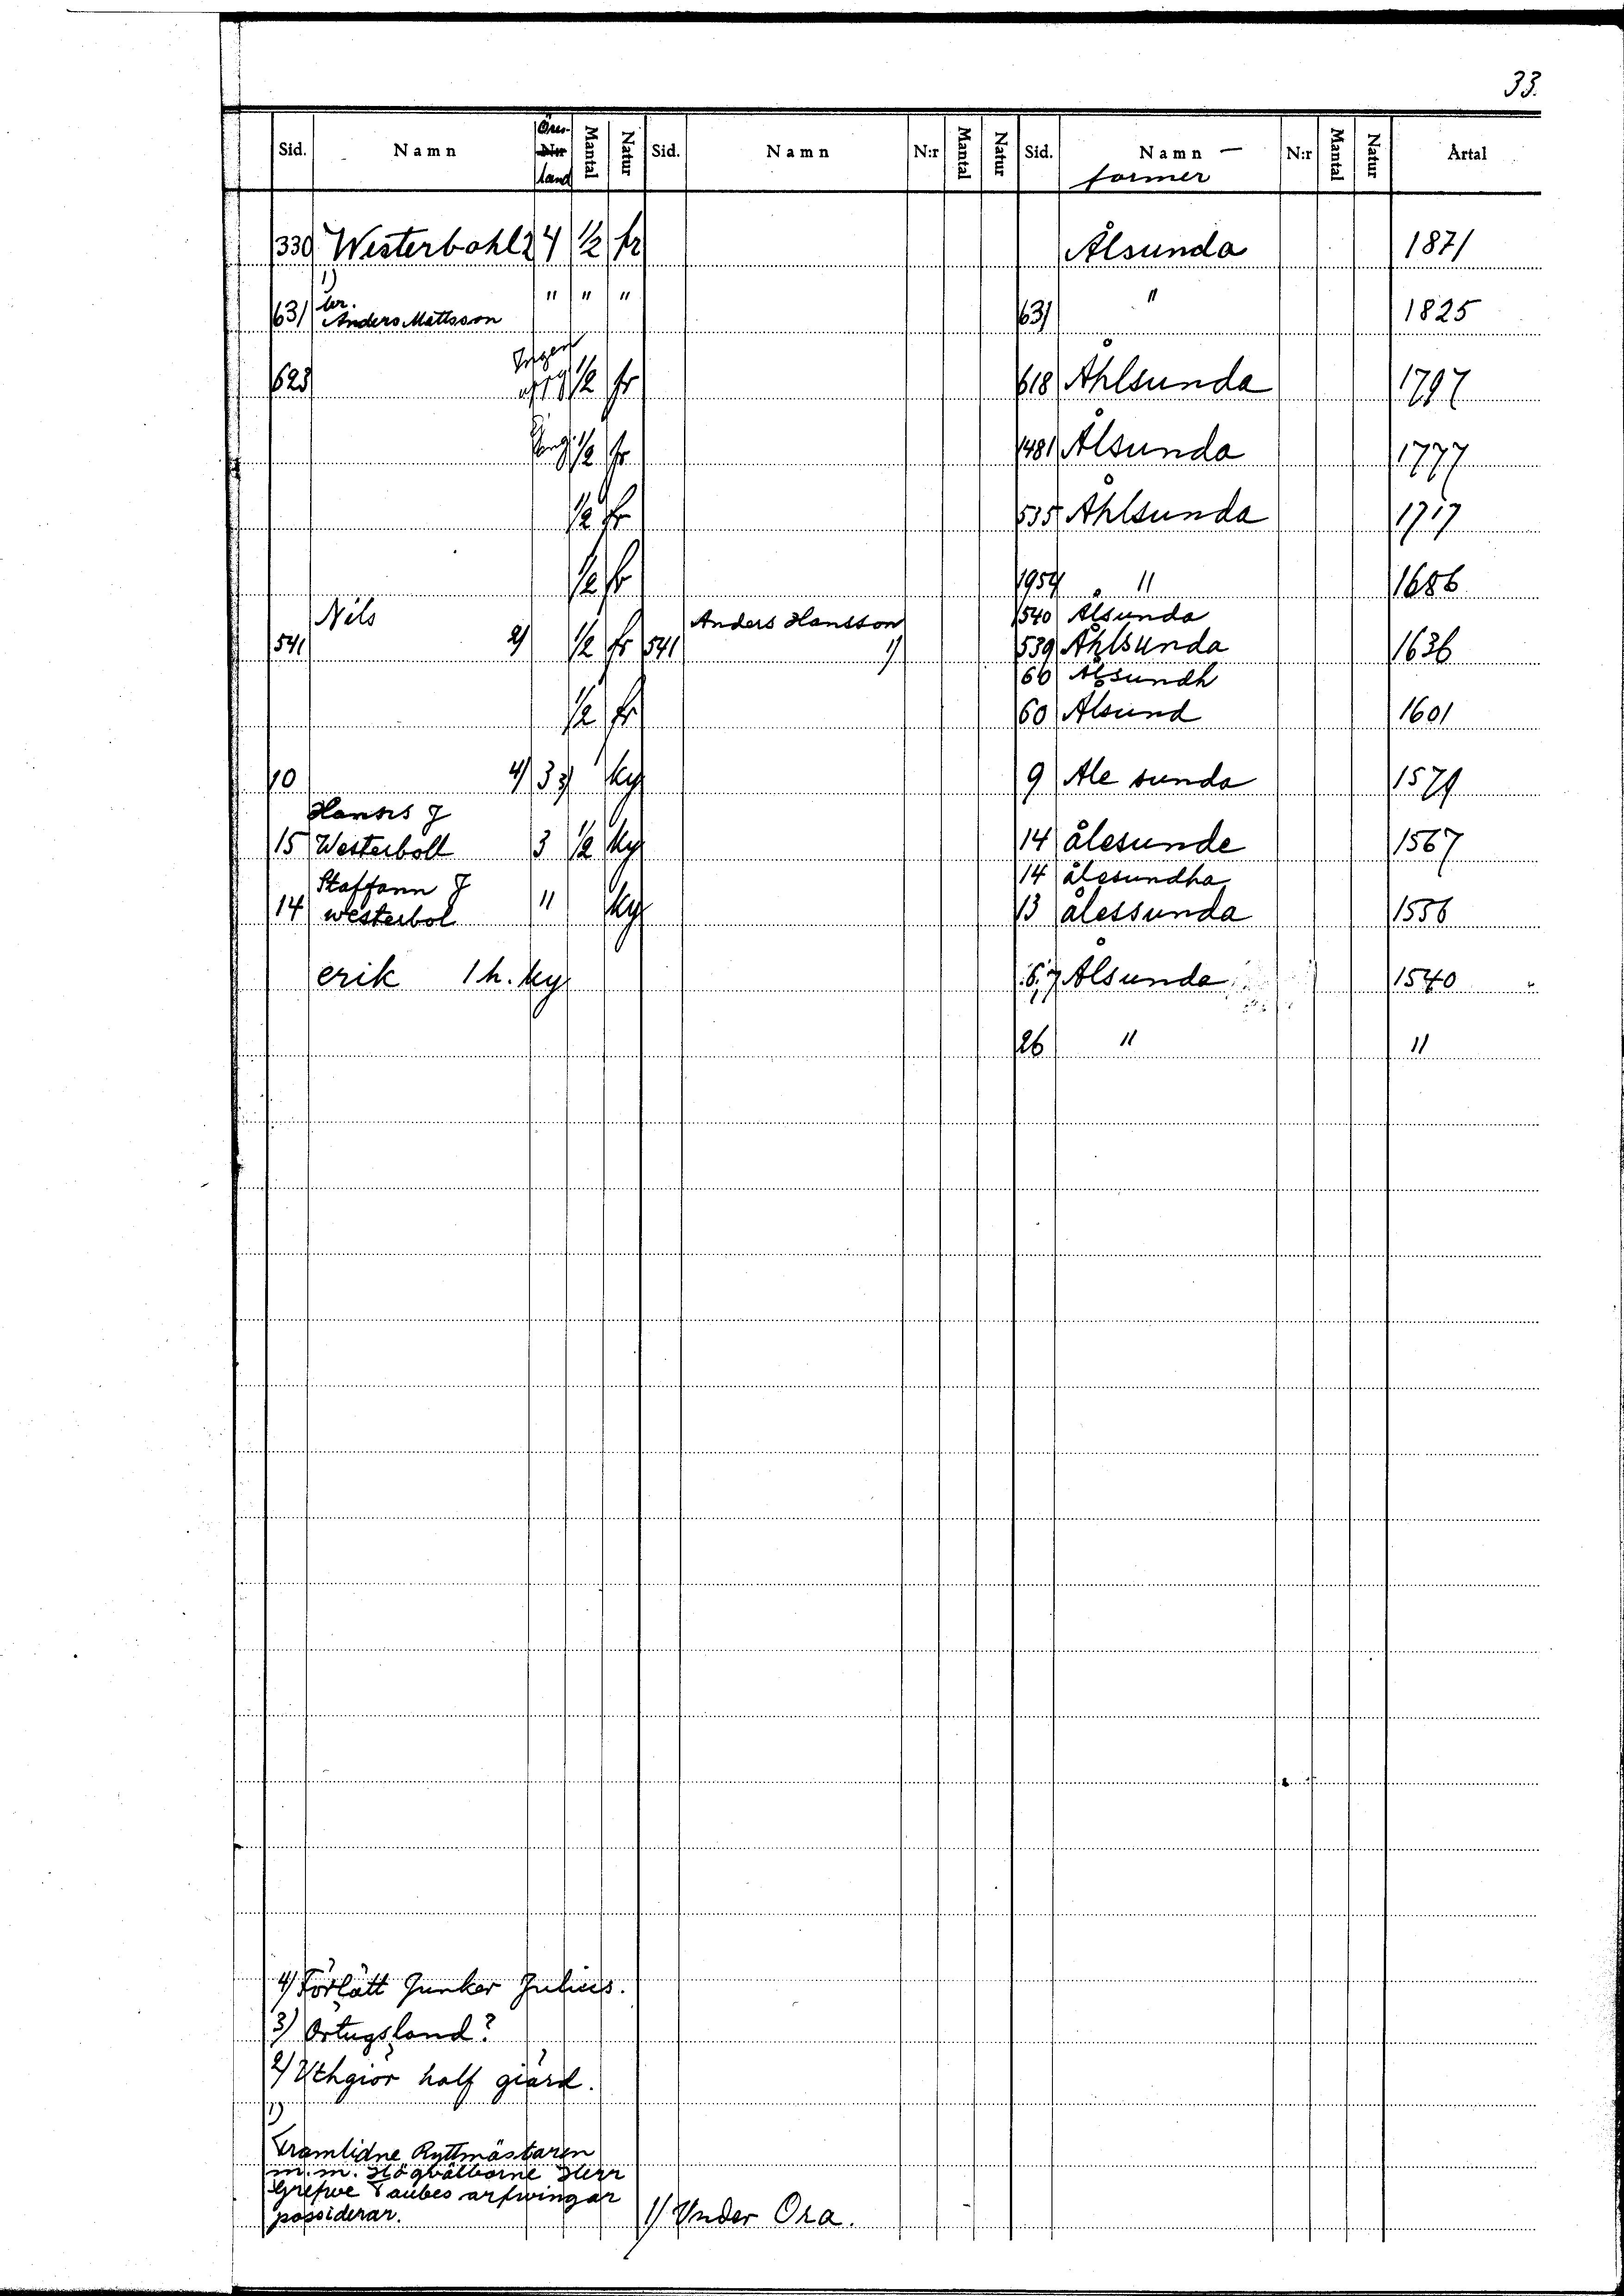 33.
Sid. Namn Öres- N:r land Mantal Natur Sid. Namn N:r Mantal Natur Sid. Namn - former N:r Mantal Natur Årtal
330 Westerbohl 2 4 1/2 fr Ålsunda 1871
1)
631 Anders Mattsson " " " 631 " 1825
Ingen
623 uppg 1/2 fr 618 Åhlsunda 1797
1/2 fr 1481 Ålsunda 1777
1/2 fr 535 Åhlsunda 1717
1/2 fr 1954 " 1686
Nils Anders Hansson 540 Ålsunda
541 2) 1/2 fr 541 1) 539 Åhlsunda 1636
60 Ålsundh
1/2 fr 60 Ålsund 1601
10 4) 3 3) ky 9 Ale sunda 1579
Hanss J
15 Westerboll 3 1/2 ky 14 ålesunde 1567
Staffann J 14 ålesundha
14 westerbol " ky 13 ålessunda 1556
erik 1 h. ky 6,7 Ålsunda 1540
26 " "
4) Förlätt Junker Julius.
3) Örtugsland?
2) Vthgiör half giärd.
1)
Framlidne Ryttmästaren
m.m. Högvälborne Herr
Grefwe Taubes arfwingar
possiderar. 1) Vnder Ora.